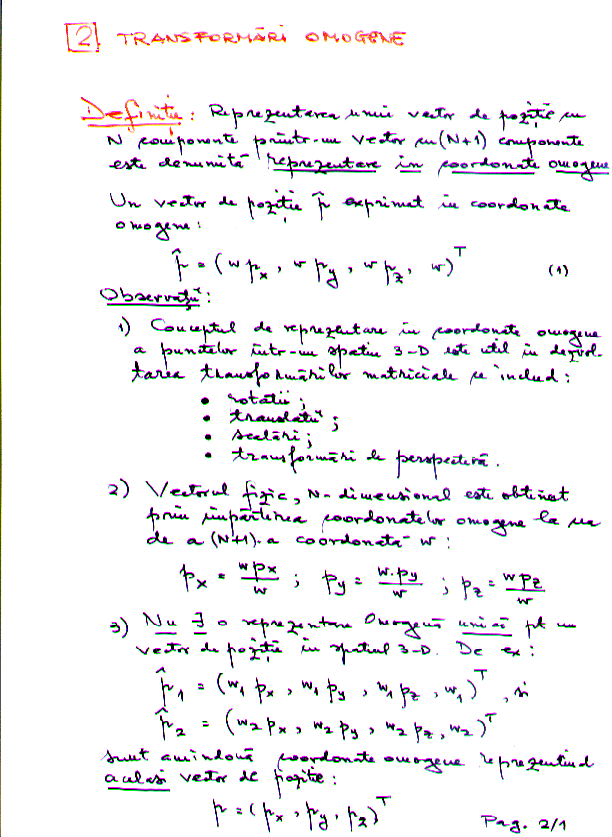 2 TRANSFORMĂRI OMOGENE
Definiție: Reprezentarea unui vector de poziție cu
N componente printr-un vector cu (N+1) componente
este denumită reprezentare in coordonate omogene
Un vector de poziție p̂ exprimat in coordonate
omogene:
p̂ = (w px, w py, w pz, w)^T (1)
Observații:
1) Conceptul de reprezentare in coordonate omogene
a punctelor într-un spatiu 3-D este util in dezvol-
tarea transformărilor matriciale ce includ:
• rotatii;
• translatii;
• scalări;
• transformări de perspectivă.
2) Vectorul fizic, N-dimensional este obtinut
prin împărtirea coordonatelor omogene la cea
de a (N+1)-a coordonată w:
px = w px / w ; py = w.py / w ; pz = w pz / w
3) Nu ∃ o reprezentare Omogenă unică pt un
vector de poziție in spatiul 3-D. De ex:
p̂1 = (w1 px, w1 py, w1 pz, w1)^T, si
p̂2 = (w2 px, w2 py, w2 pz, w2)^T
sunt amindouă coordonate omogene reprezentind
acelasi vector de pozitie:
p = (px, py, pz)^T
Pag. 2/1